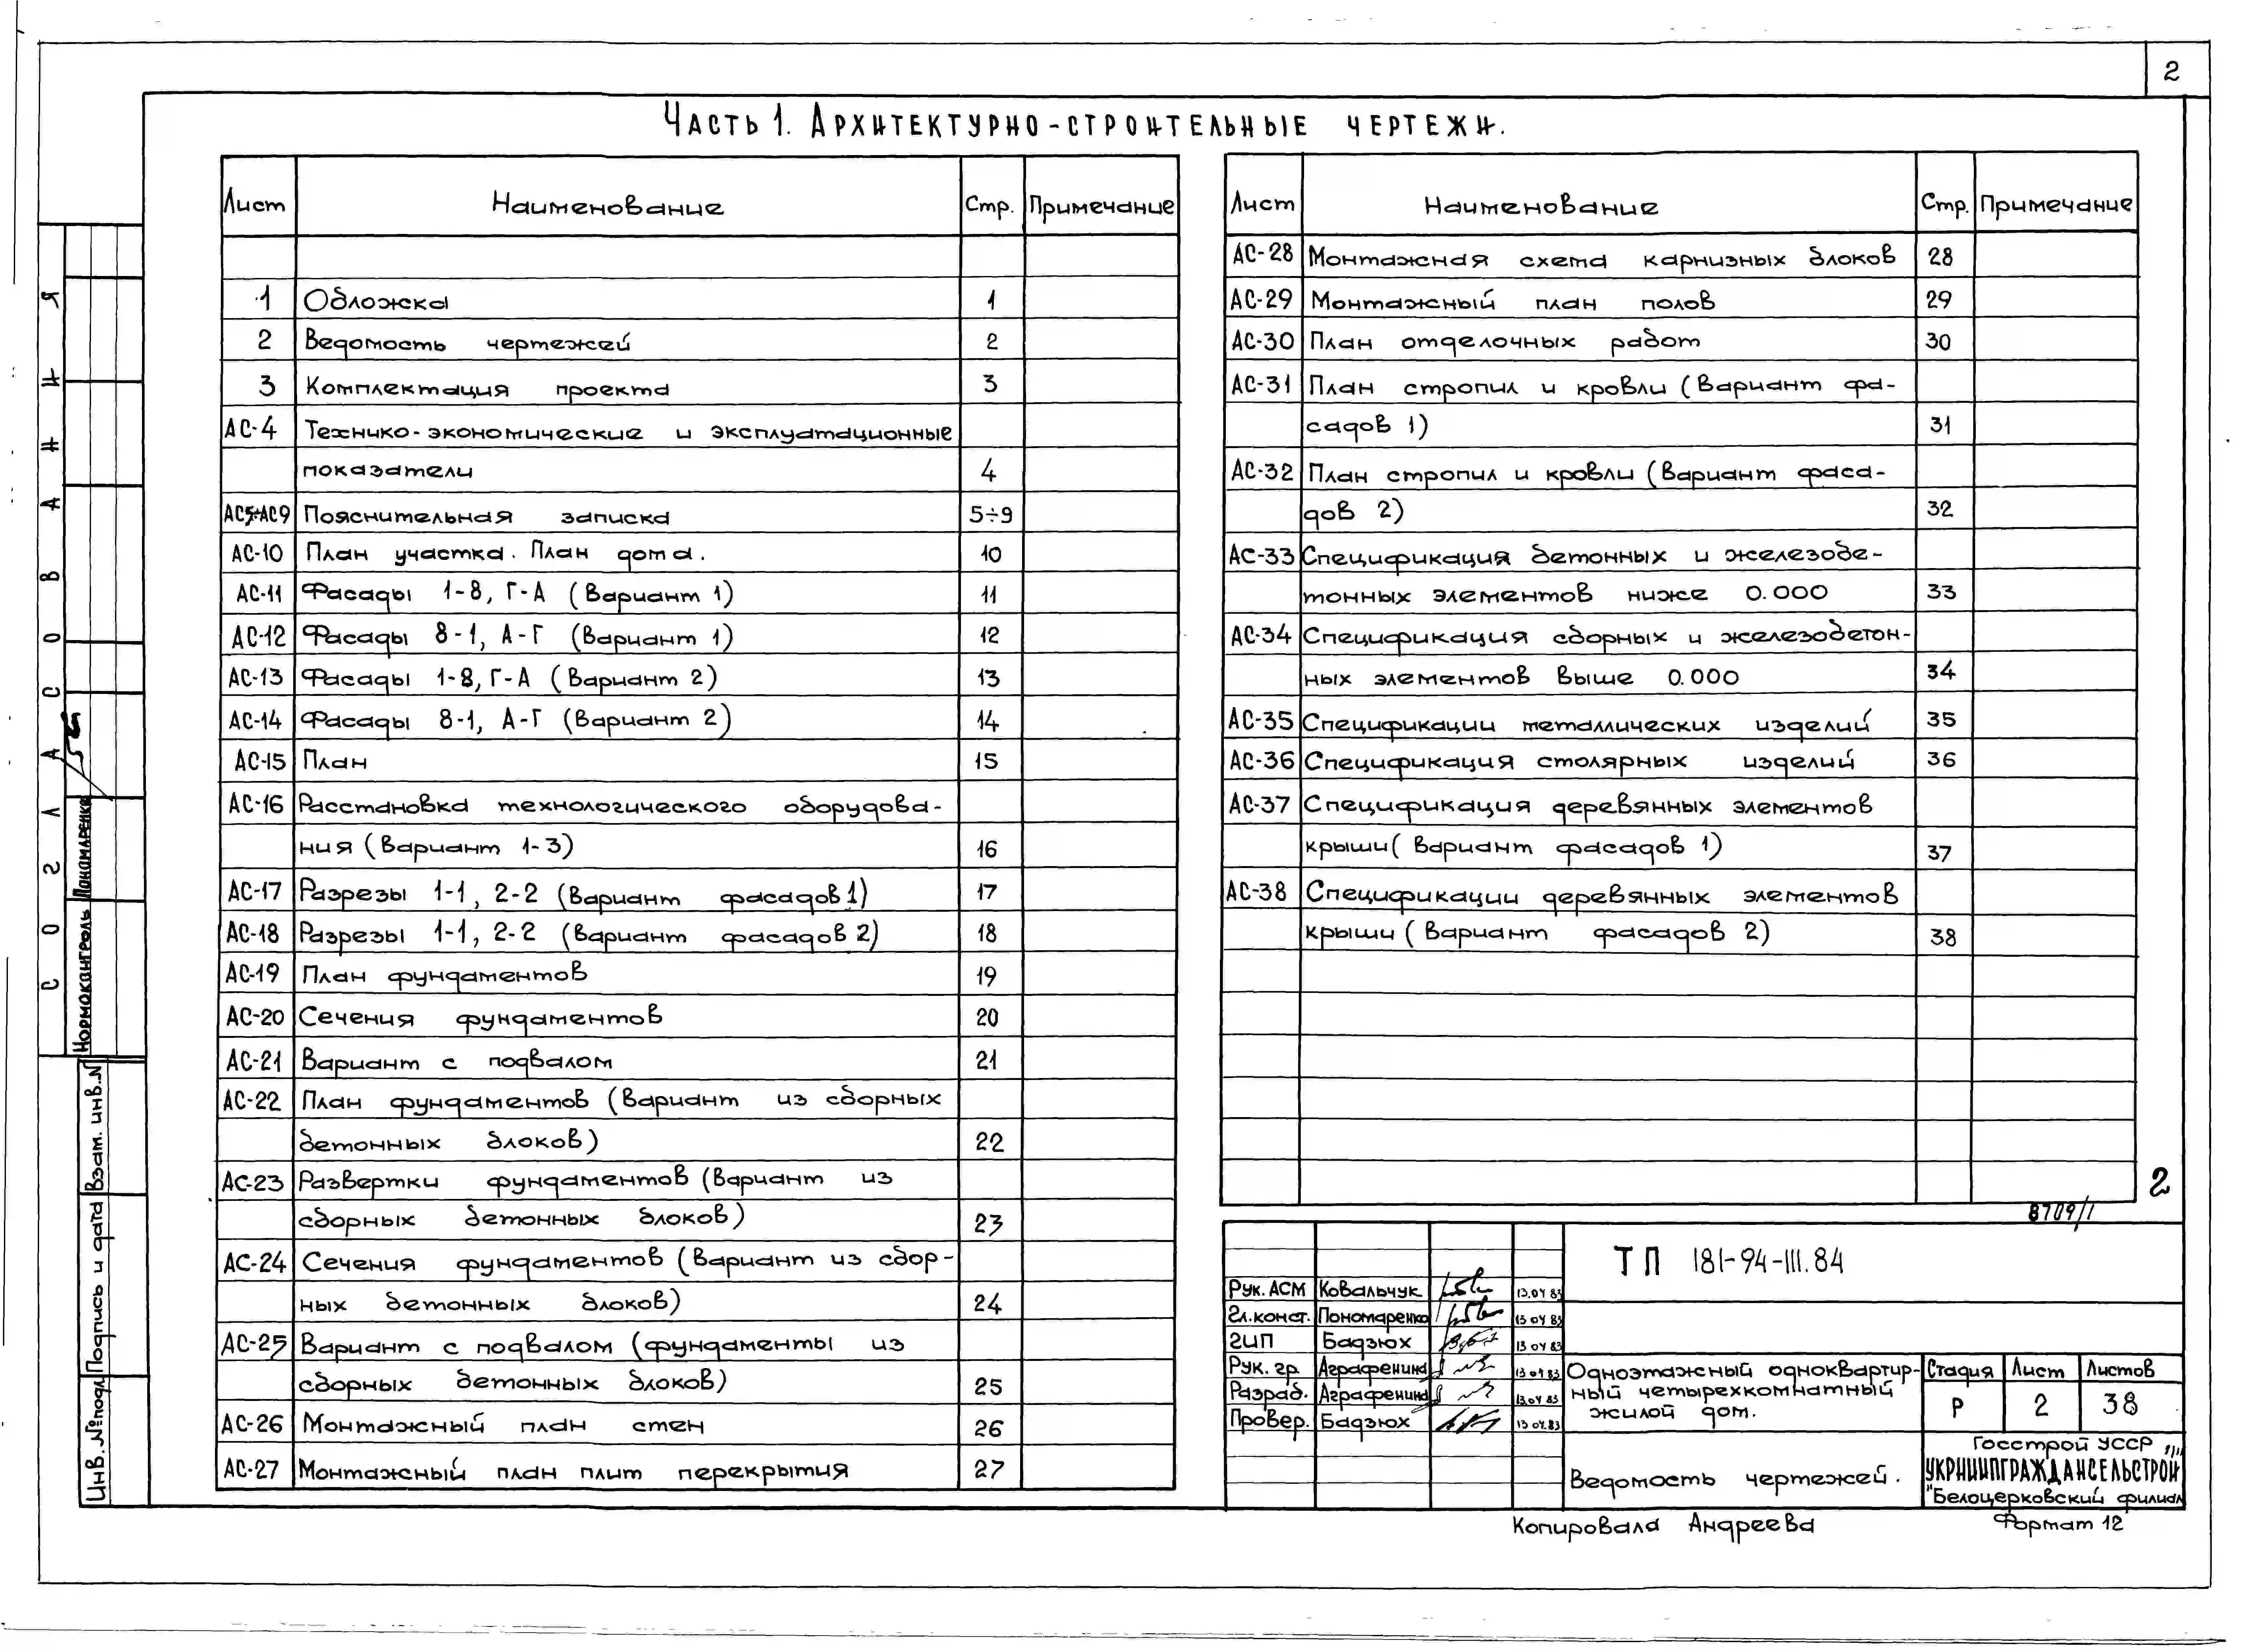 2
Часть 1. Архитектурно-строительные чертежи.
Лист Наименование Стр. Примечание
1 Обложка 1
2 Ведомость чертежей 2
3 Комплектация проекта 3
АС-4 Технико-экономические и эксплуатационные
показатели 4
АС5÷АС9 Пояснительная записка 5÷9
АС-10 План участка. План дома. 10
АС-11 Фасады 1-8, Г-А (Вариант 1) 11
АС-12 Фасады 8-1, А-Г (Вариант 1) 12
АС-13 Фасады 1-8, Г-А (Вариант 2) 13
АС-14 Фасады 8-1, А-Г (Вариант 2) 14
АС-15 План 15
АС-16 Расстановка технологического оборудова-
ния (Вариант 1-3) 16
АС-17 Разрезы 1-1, 2-2 (Вариант фасадов 1) 17
АС-18 Разрезы 1-1, 2-2 (Вариант фасадов 2) 18
АС-19 План фундаментов 19
АС-20 Сечения фундаментов 20
АС-21 Вариант с подвалом 21
АС-22 План фундаментов (Вариант из сборных
бетонных блоков) 22
АС-23 Развертки фундаментов (Вариант из
сборных бетонных блоков) 23
АС-24 Сечения фундаментов (Вариант из сбор-
ных бетонных блоков) 24
АС-25 Вариант с подвалом (фундаменты из
сборных бетонных блоков) 25
АС-26 Монтажный план стен 26
АС-27 Монтажный план плит перекрытия 27
Лист Наименование Стр. Примечание
АС-28 Монтажная схема карнизных блоков 28
АС-29 Монтажный план полов 29
АС-30 План отделочных работ 30
АС-31 План стропил и кровли (Вариант фа-
садов 1) 31
АС-32 План стропил и кровли (Вариант фаса-
дов 2) 32
АС-33 Спецификация бетонных и железобе-
тонных элементов ниже 0.000 33
АС-34 Спецификация сборных и железобетон-
ных элементов выше 0.000 34
АС-35 Спецификации металлических изделий 35
АС-36 Спецификация столярных изделий 36
АС-37 Спецификация деревянных элементов
крыши (Вариант фасадов 1) 37
АС-38 Спецификации деревянных элементов
крыши (Вариант фасадов 2) 38
2
8709/1
ТП 181-94-III.84
Рук. АСМ Ковальчук 13.04 83
Гл. конст. Пономаренко 13 04 83
ГИП Бадзюх 13 04 83
Рук. гр. Аграфенина 13 04 83
Разраб. Аграфенина 13.04 83
Провер. Бадзюх 13 04.83
Одноэтажный одноквартир-
ный четырехкомнатный
жилой дом.
Стадия Лист Листов
Р 2 38
Ведомость чертежей.
Госстрой УССР
УКРНИИПГРАЖДАНСЕЛЬСТРОЙ
Белоцерковский филиал
Копировала Андреева
Формат 12
СОГЛАСОВАННИЯ
Нормоконтроль
Взам. инв. №
Подпись и дата
Инв. № подл